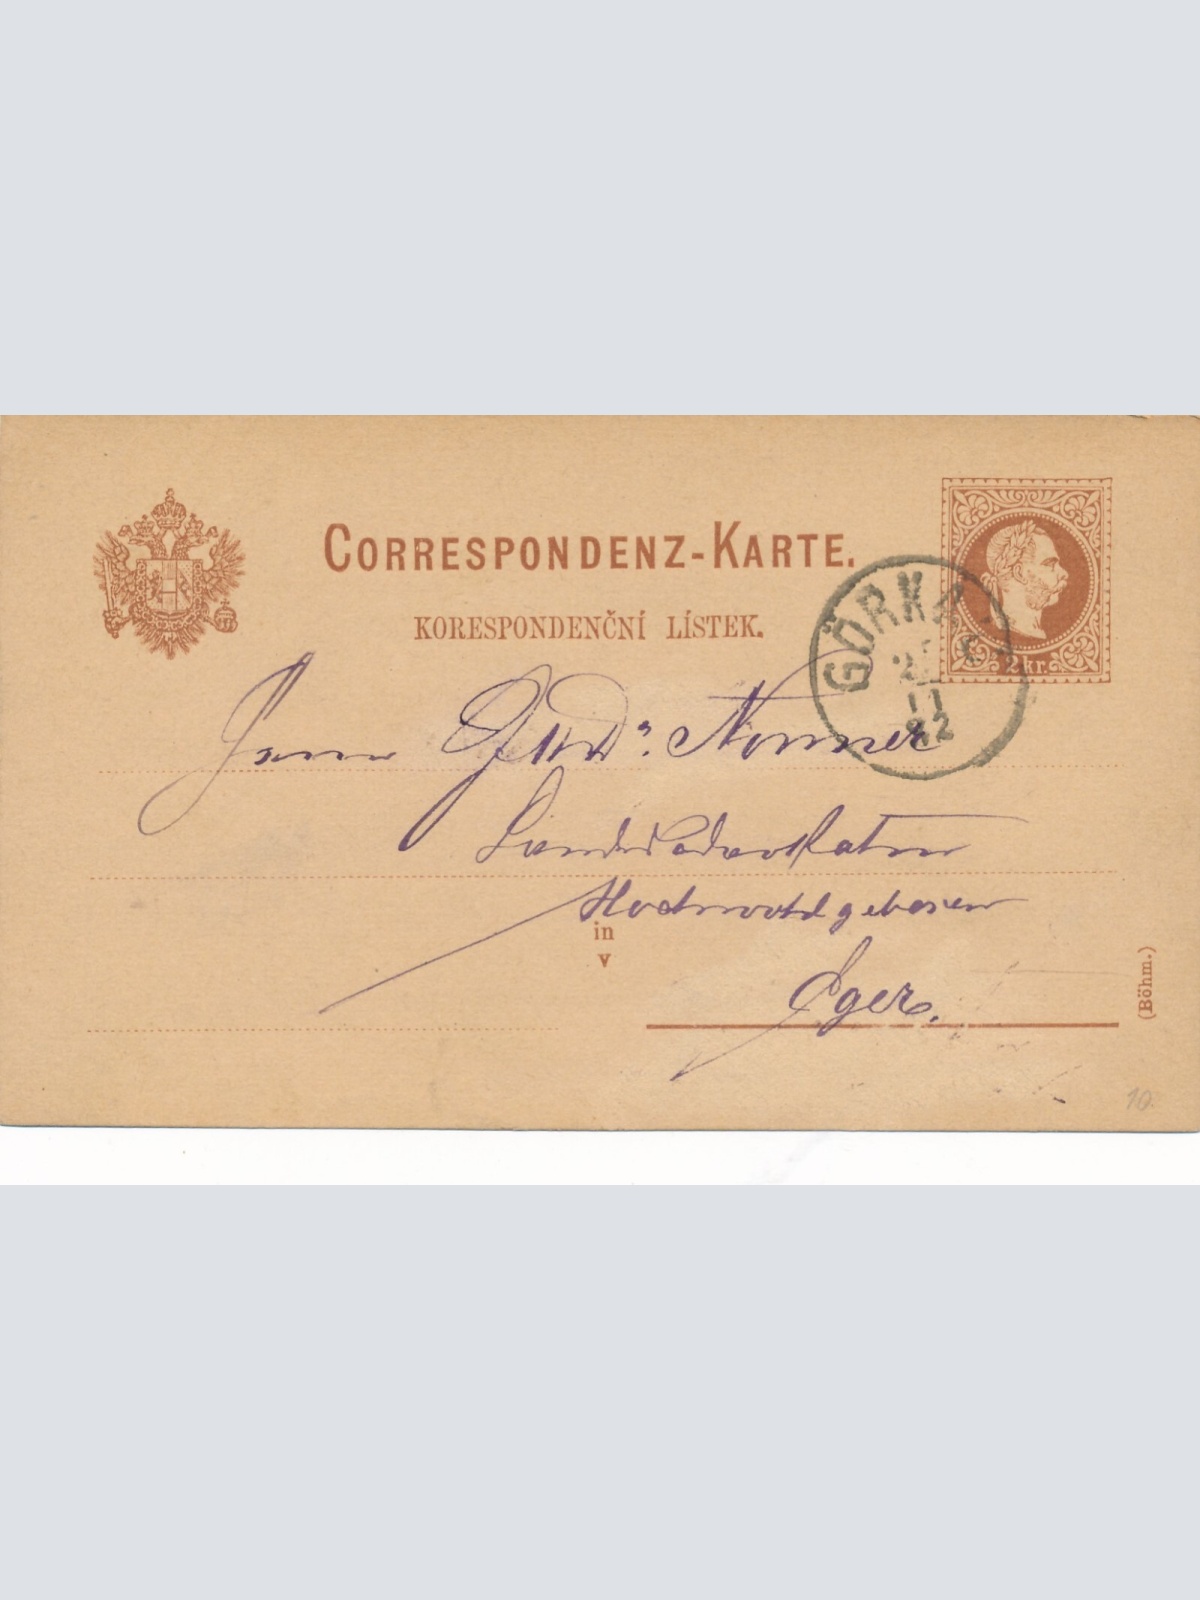 CORRESPONDENZ-KARTE.
KORESPONDENČNÍ LÍSTEK.
2 kr.
GÖRKAU
11
82
Herrn
Landesadvokaten
Hochwohlgeboren
in
v
Eger.
(Böhm.)
10.